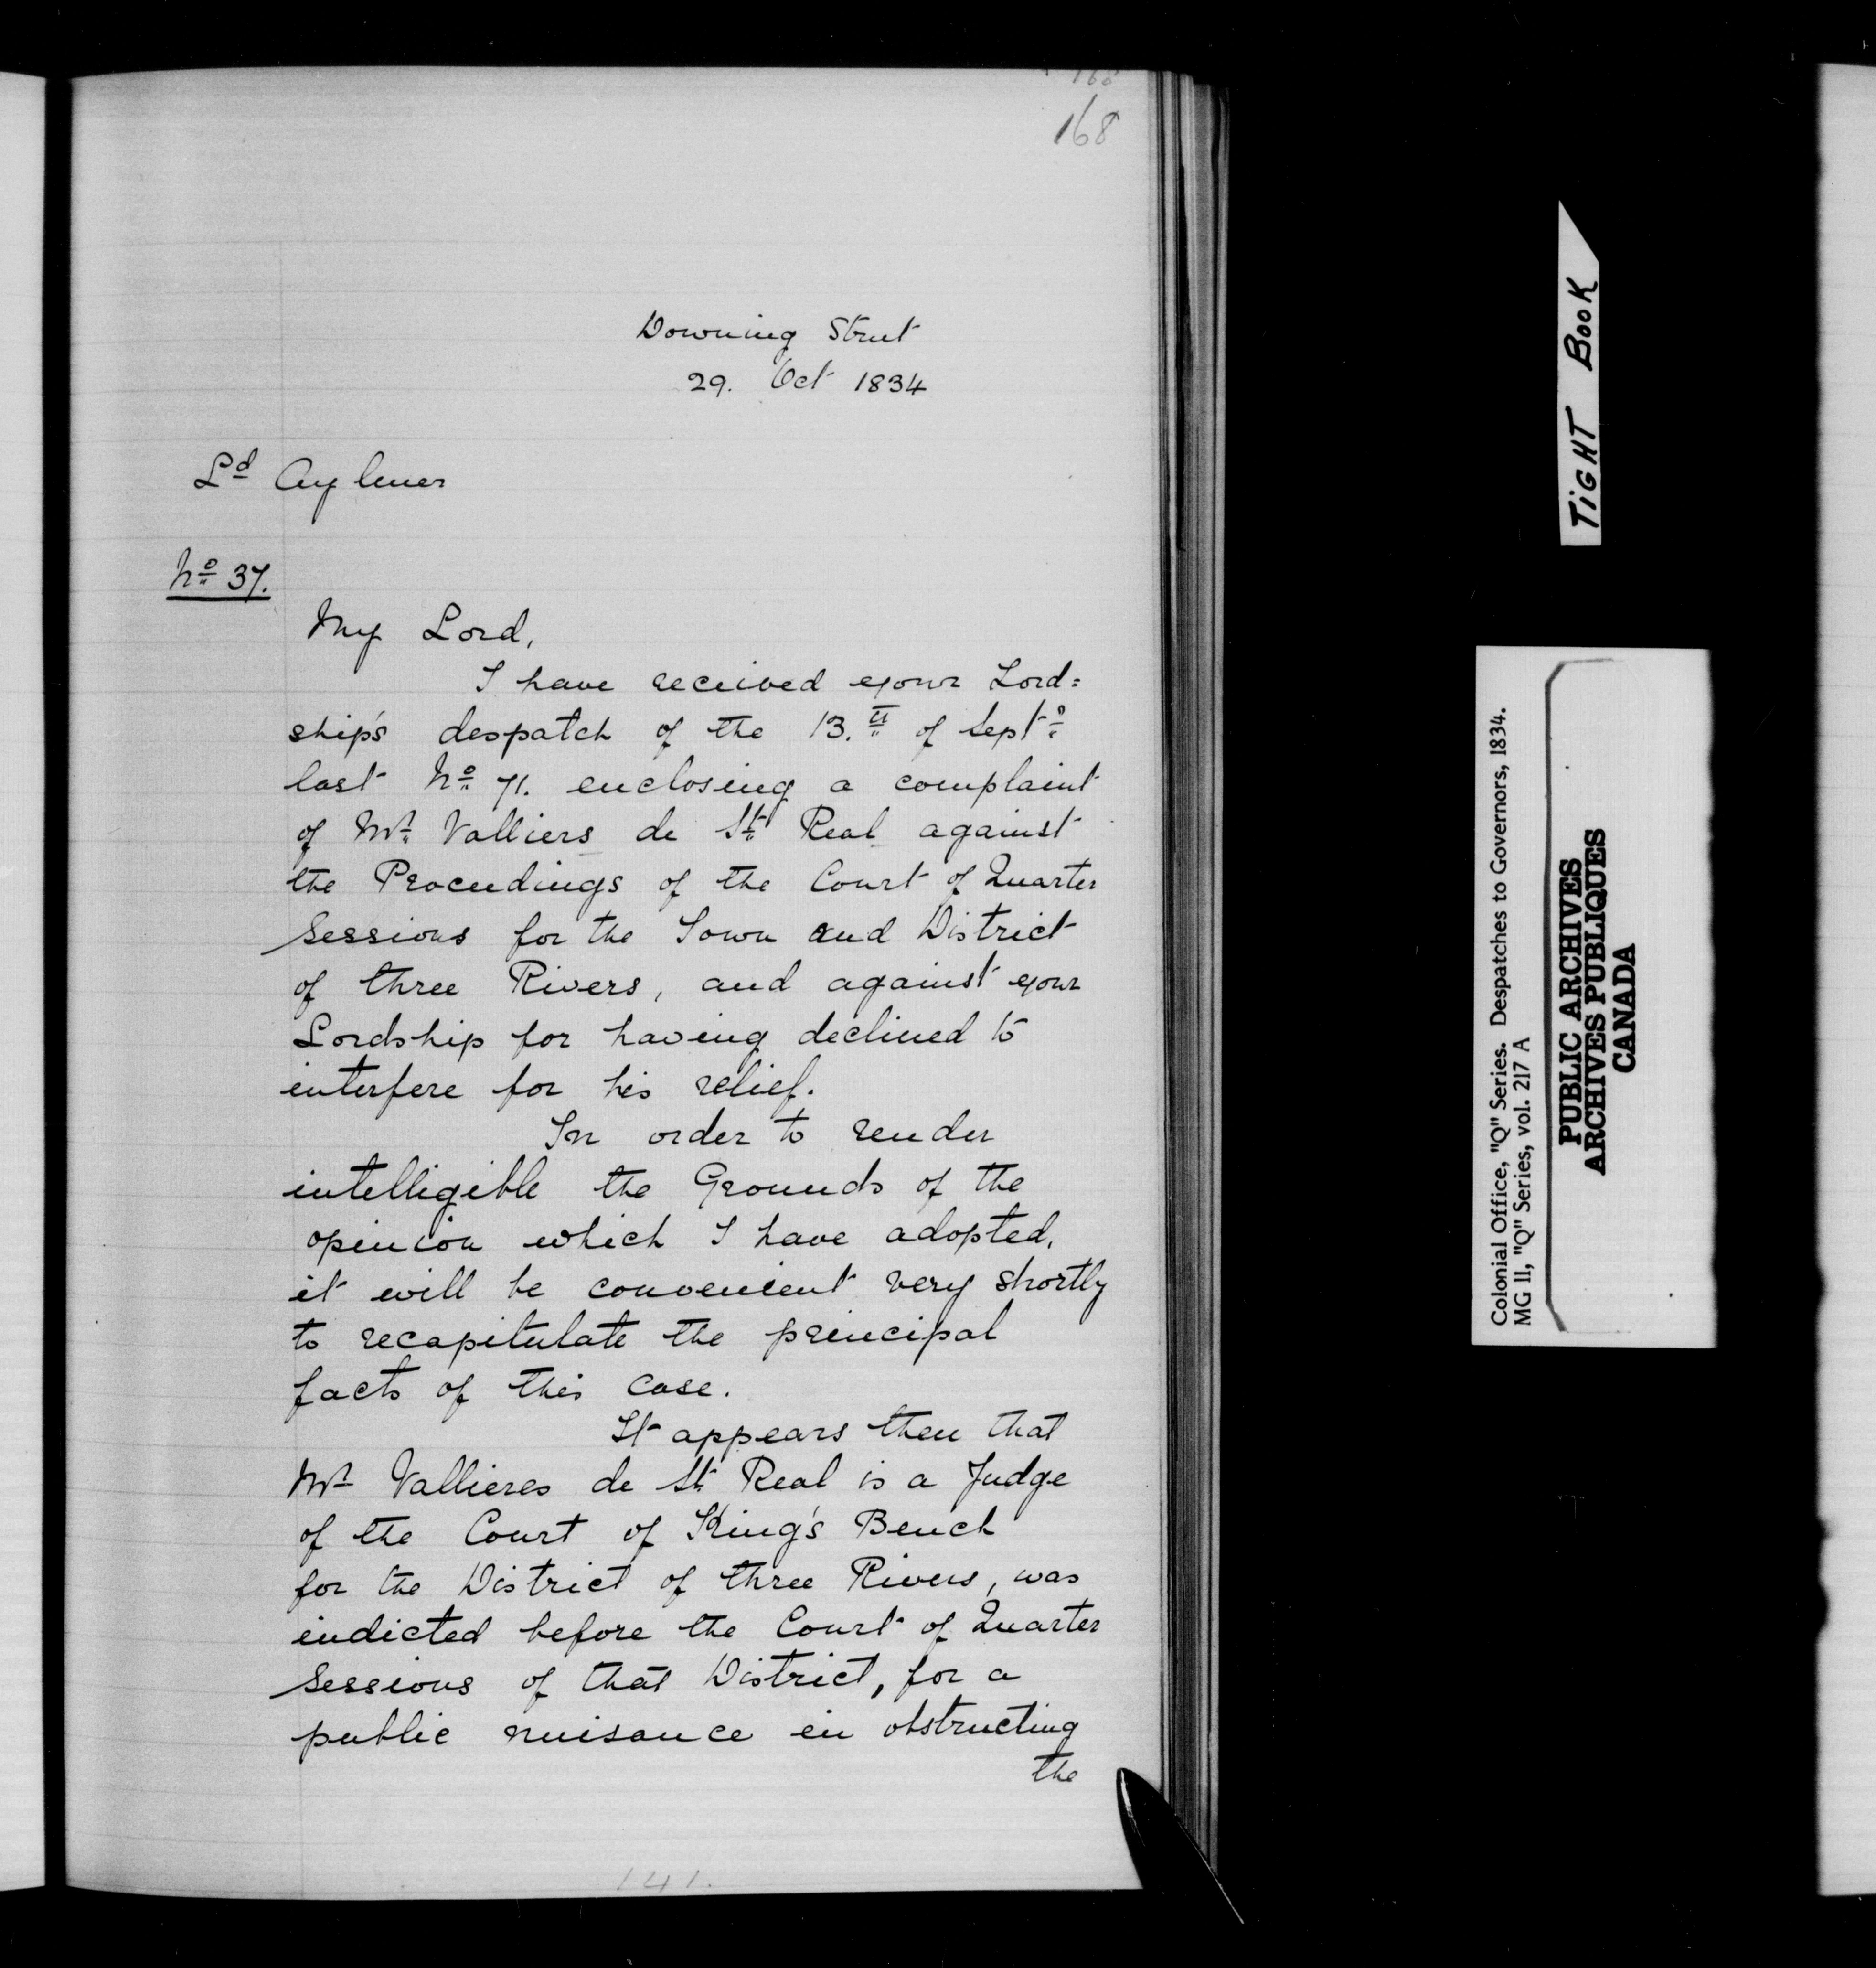 168
Downing Street
29. Oct 1834
Ld Aylmer
No 37.
My Lord,
I have received your Lord=
ship's despatch of the 13.th of Septr
last No 71. enclosing a complaint
of Mr Valliers de St Real against
the Proceedings of the Court of Quarter
Sessions for the Town and District
of three Rivers, and against your
Lordship for having declined to
interfere for his relief.
In order to render
intelligible the Grounds of the
opinion which I have adopted,
it will be convenient very shortly
to recapitulate the principal
facts of this case.
It appears then that
Mr Vallieres de St Real is a Judge
of the Court of King's Bench
for the District of three Rivers, was
indicted before the Court of Quarter
Sessions of that District, for a
public nuisance in obstructing
the
141.
TIGHT BOOK
Colonial Office, "Q" Series. Despatches to Governors, 1834.
MG 11, "Q" Series, vol. 217 A
PUBLIC ARCHIVES
ARCHIVES PUBLIQUES
CANADA